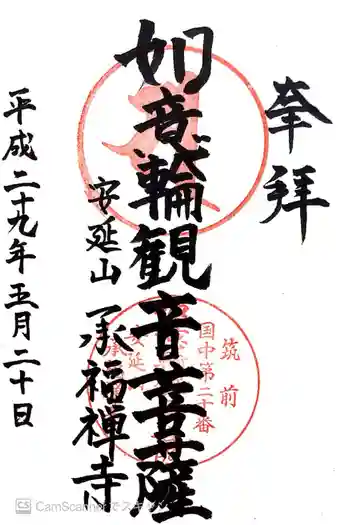 奉拝
如意輪観音菩薩
安延山 承福禅寺
平成二十九年五月二十日
筑前
国中第二十番
安延
CamScannerでスキャン